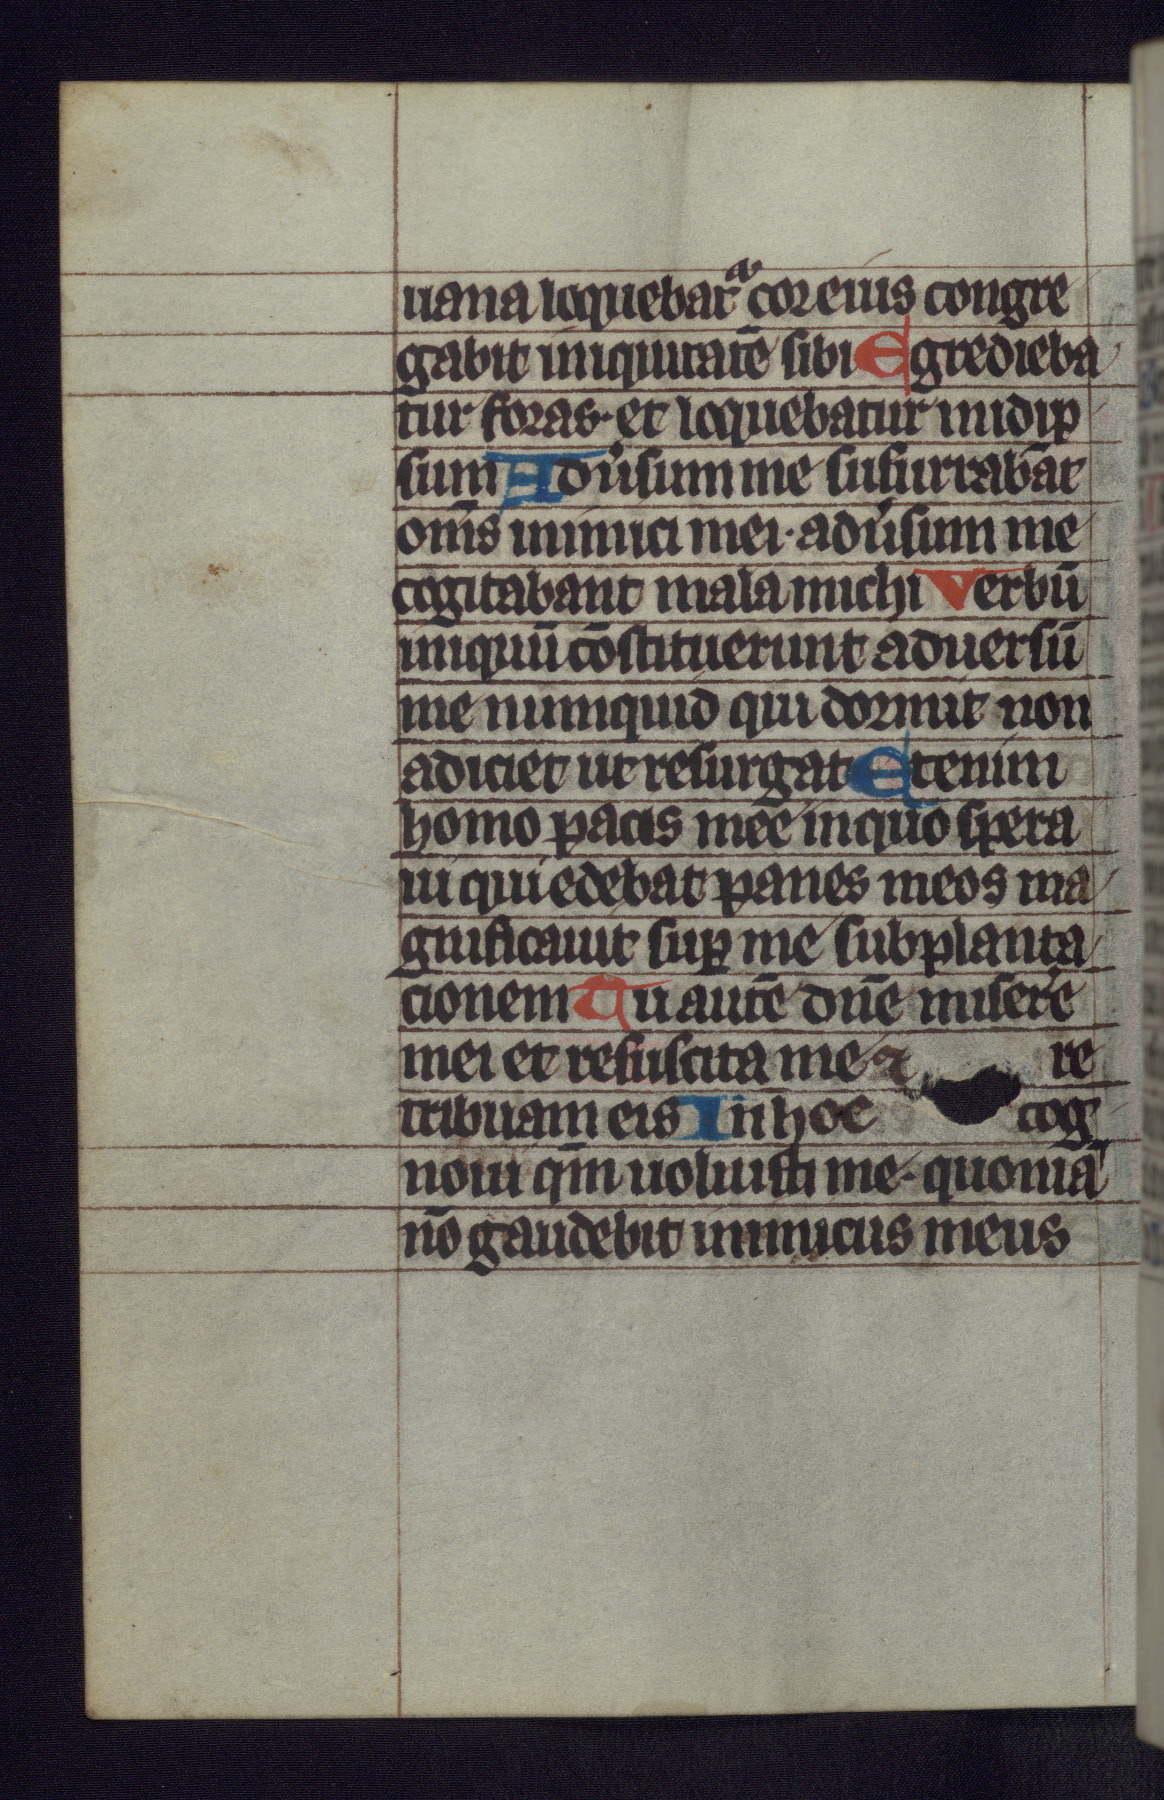 uana loquebat᷑ cor eius congre
gabit iniquitatē sibi Egredieba
tur foras · et loquebatur in idip
sum Adu̓sum me susurrabāt
om̄s inimici mei · adu̓sum me
cogitabant mala michi Verbū
iniquū cōstituerunt aduersū
me numquid qui dormit non
adiciet ut resurgat Etenim
homo pacis mee in quo spera
ui qui edebat panes meos ma
gnificauit suꝑ me subplanta
cionem Tu autē dn̄e misere
mei et resuscita me ⁊ re
tribuam eis In hoc cog
noui qm̄ uoluisti me · quoniā
nō gaudebit inimicus meus